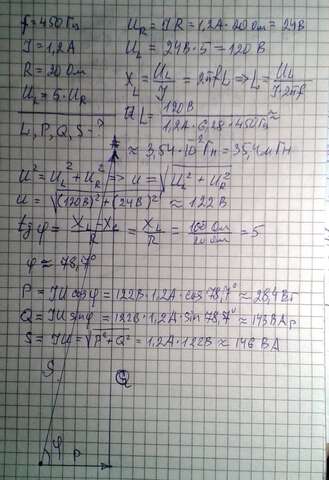 f=450Гц
I=1,2A
R=20Ом
U_L=5·U_R
L, P, Q, S-?
U_R=IR=1,2A·20Ом=24В
U_L=24В·5=120В
X_L=U_L/I=2πfL=>L=U_L/(I·2πf)
L=120В/(1,2A·6,28·450Гц)≈
≈3,54·10^-2Гн=35,4мГн
U²=U_L²+U_R²=>U=√(U_L²+U_R²)
U=√((120В)²+(24В)²)≈122В
tgφ=(X_L-X_C)/R=X_L/R=100Ом/20Ом=5
φ≈78,7°
P=IUcosφ=122В·1,2A·cos78,7°≈28,4Вт
Q=IUsinφ=122В·1,2A·sin78,7°≈143ВАр
S=IU=√(P²+Q²)=1,2A·122В≈146ВА
S
Q
φ
P